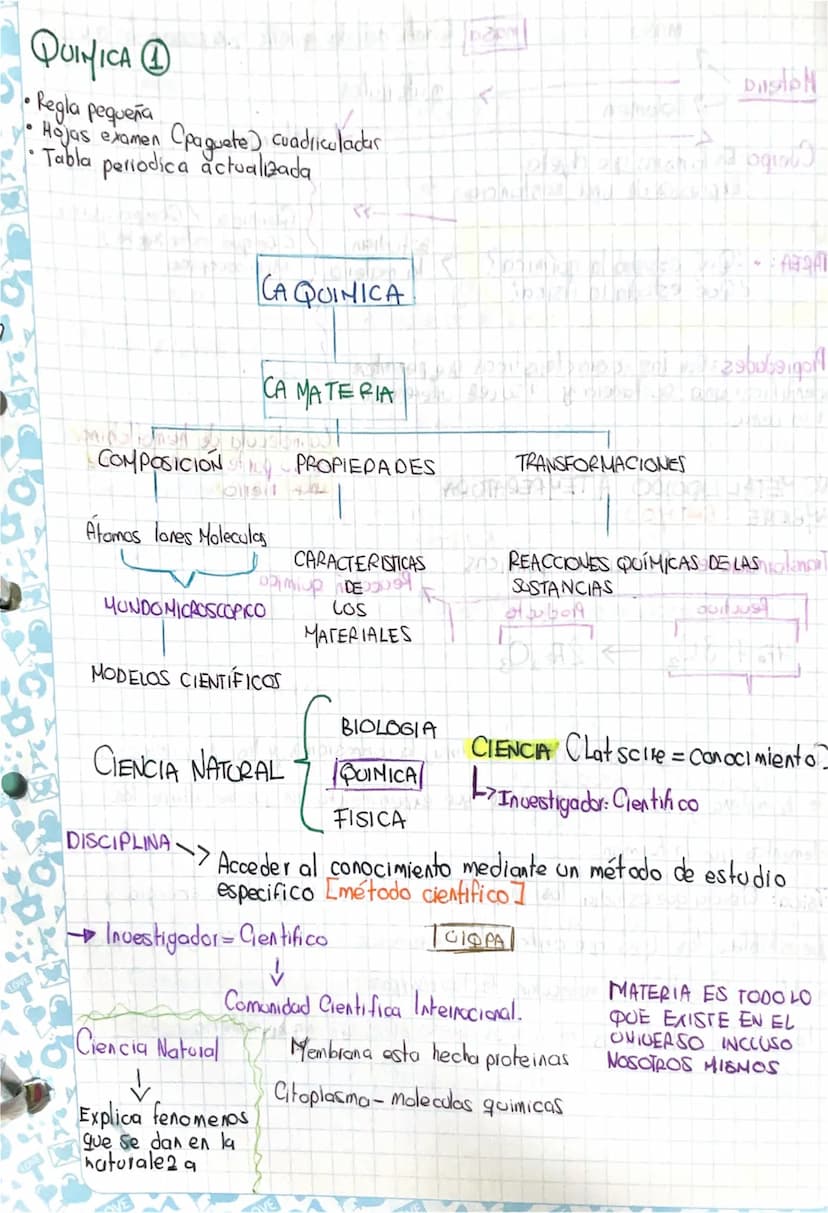 QUIMICA 1
• Regla pequeña
• Hojas examen (paquete) cuadriculadas
• Tabla periodica actualizada
LA QUIMICA
LA MATERIA
COMPOSICIÓN PROPIEDADES TRANSFORMACIONES
Átomos Iones Moleculas
MUNDO MICROSCOPICO
MODELOS CIENTÍFICOS
CARACTERISTICAS
DE
LOS
MATERIALES
REACCIONES QUÍMICAS DE LAS
SUSTANCIAS
CIENCIA NATURAL
BIOLOGIA
QUIMICA
FISICA
CIENCIA (Lat scire = conocimiento)
↳ Investigador: Cientifico
DISCIPLINA --> Acceder al conocimiento mediante un método de estudio
especifico [método cientifico]
→ Investigador = Cientifico
↓
Comunidad Cientifica Internacional.
MATERIA ES TODO LO
QUE EXISTE EN EL
UNIVERSO INCLUSO
NOSOTROS MISMOS
Ciencia Natural
↓
Explica fenomenos
que se dan en la
naturaleza
Membrana esta hecha proteinas
Citoplasma - moleculas quimicas